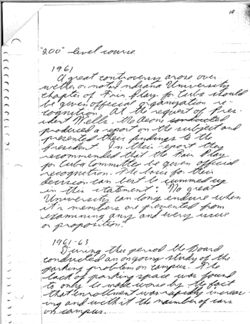 "200"-level course.
1961
A great controversy arose over
whether or not Indiana University
chapter of Fair Play for Cuba should
be given official organization re-
cognition. At the request of Pres-
ident Wells, the Deans conducted
produced a report on the subject and
presented their findings to the
President. In their report they
recommended that the Fair Play
for Cuba Committee be given official
recognition. The basis for their
decision can best be summed up
in this statement: "No great
University can long endure when
it's members are prevented from
examining any and every issue
or proposition."
1961-63
During this period the Board
conducted an ongoing study of the
parking problem on campus. The
lack of parking space was found
to only be made worse by the fact
that enrollment was rapidly increas-
ing and with it the number of cars
on campus.